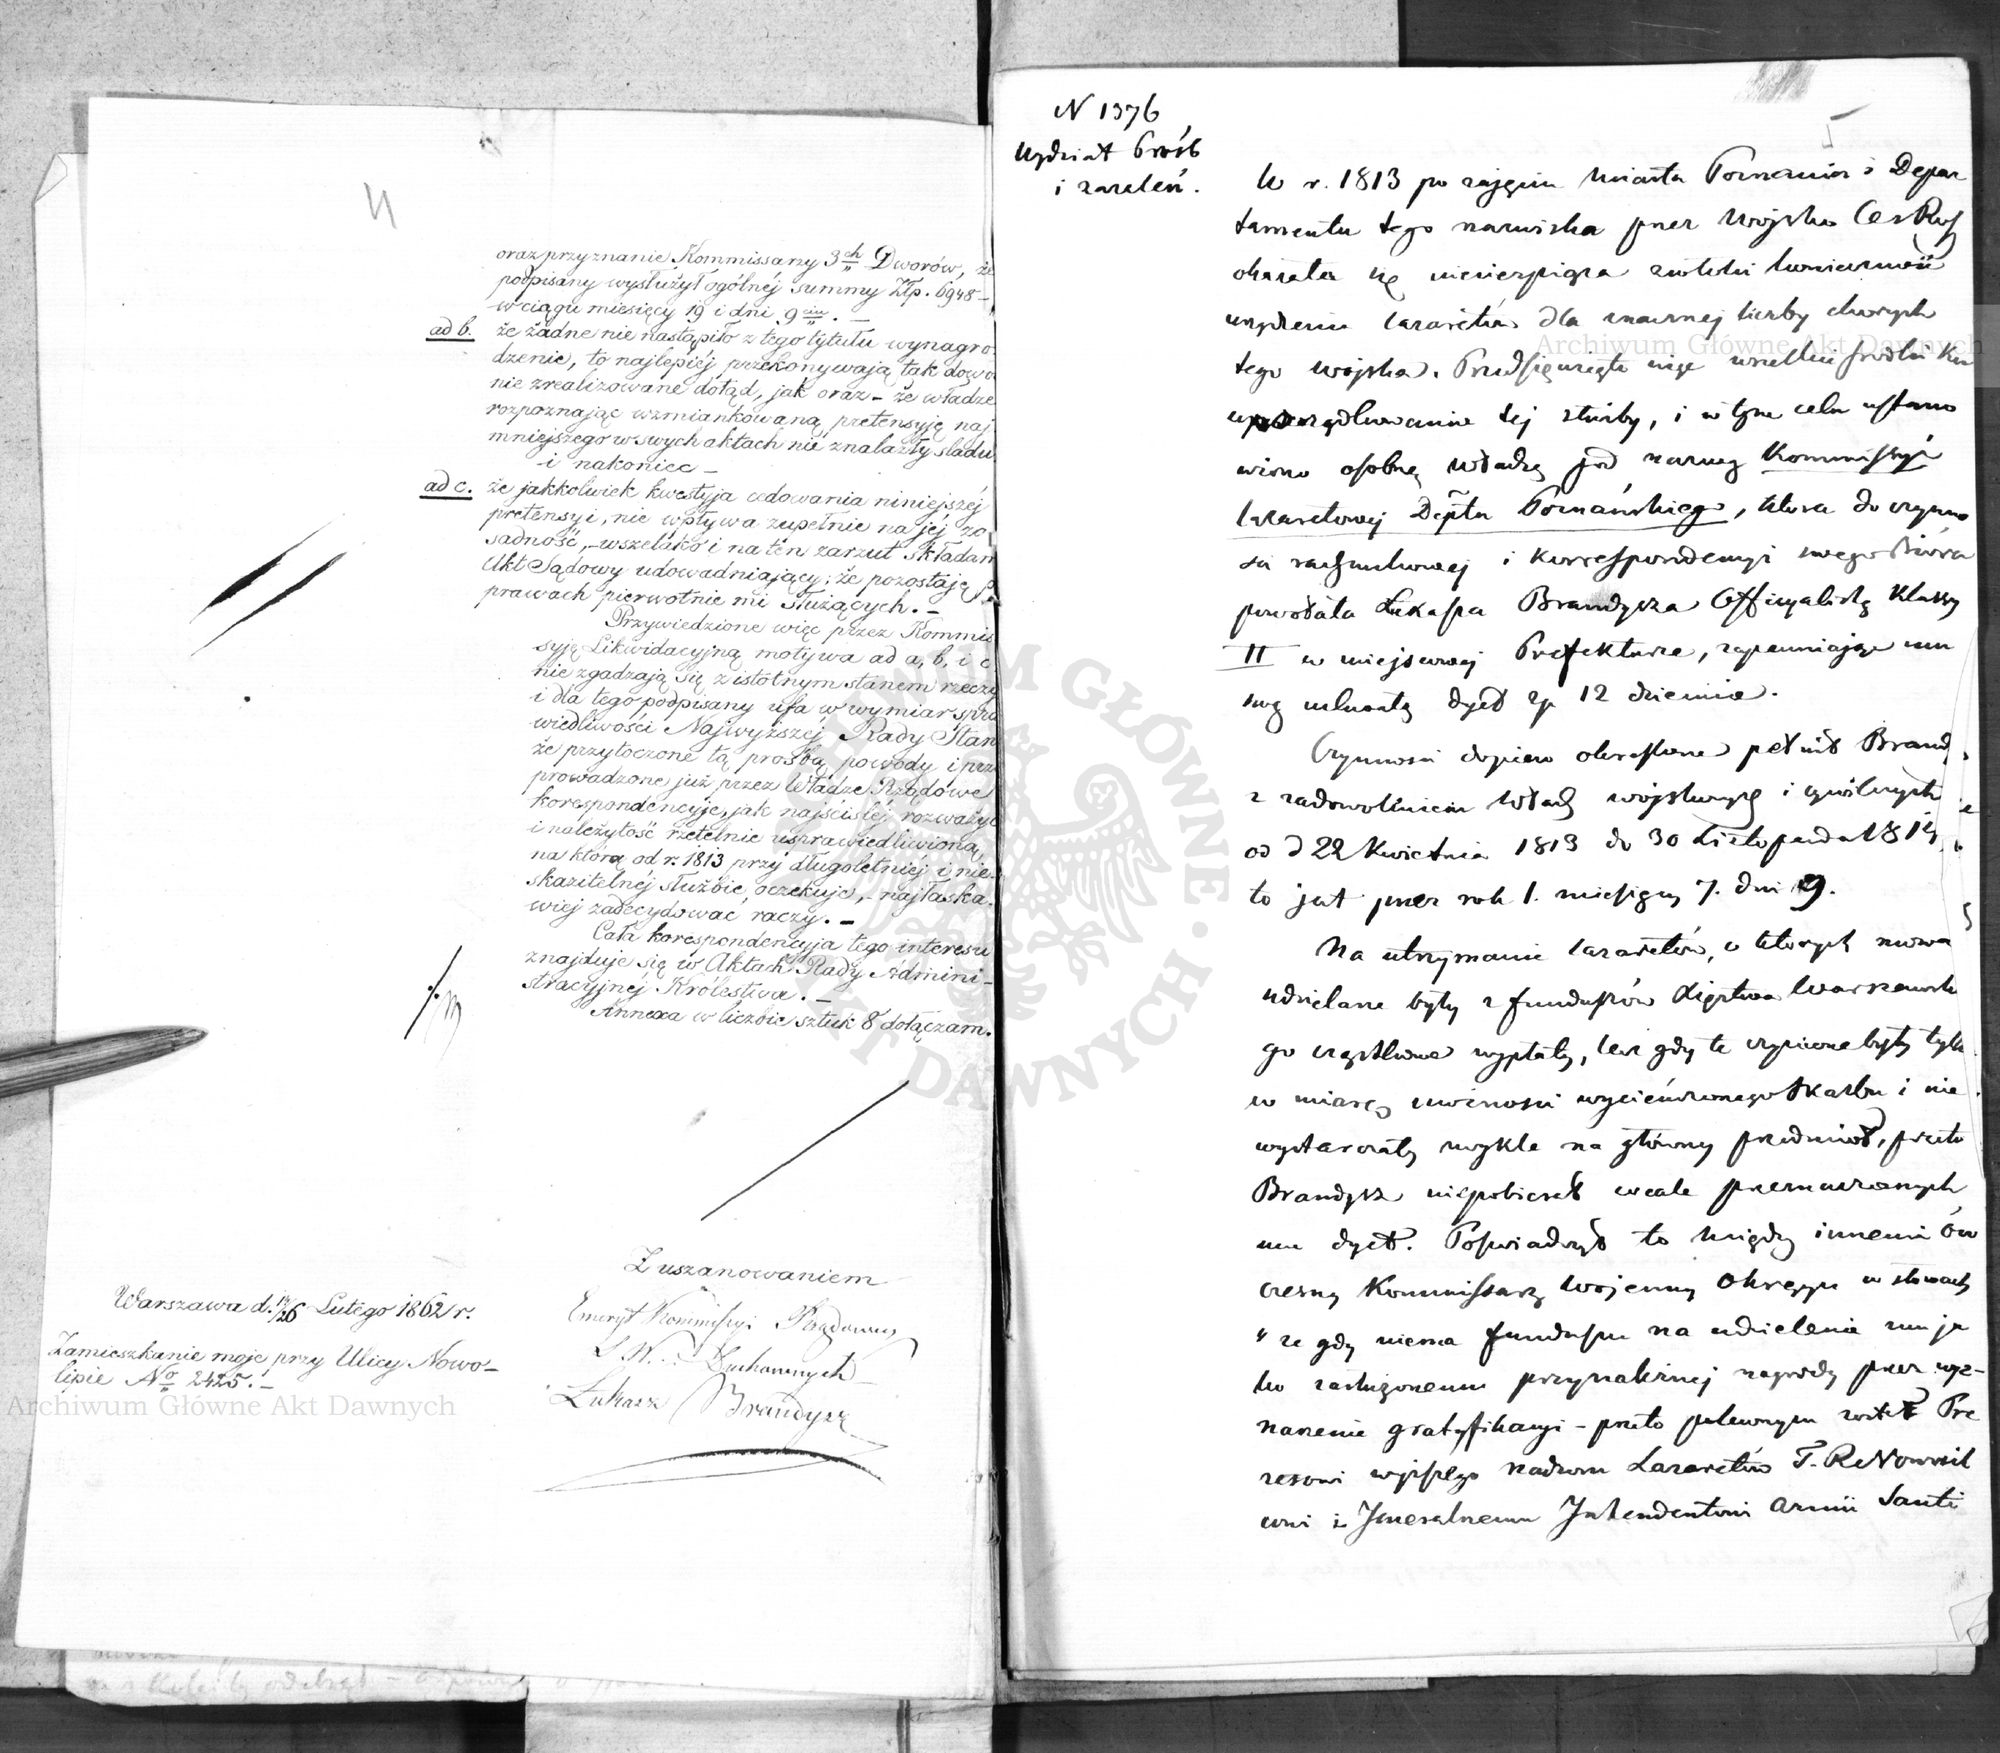 4
oraz przyznanie Kommissarzy 3ch Dworów, że
podpisany wysłużył ogólnéj summy Złp. 6948 –
w ciągu miesięcy 19 i dni 9ciu. –
ad b. że żadne nie nastąpiło z tego tytułu wynagro-
dzenie, to najlepiéj przekonywają tak dowo
nie zrealizowane dotąd, jak oraz – że władze
rozpoznając wzmiankowaną pretensyję naj
mniejszego w swych aktach nie znalazły śladu
– i nakoniec –
ad c. że jakkolwiek kwestyja cedowania niniejszéj
pretensyi, nie wpływa zupełnie na jéj za
sadność, – wszelako i na ten zarzut składam
Akt Sądowy udowadniający; że pozostaję
prawach pierwotnie mi służących. –
Przywiedzione więc przez Kommis
syję Likwidacyjną motywa ad a, b, i c
nie zgadzają się z istotnym stanem rzeczy
i dla tego podpisany ufa w wymiar spra
wiedliwości Najwyższéj Rady Stan
że przytoczone tą prośbą powody i prze
prowadzone już przez Władze Rządowe
korespondencyje, jak najściśléj rozważyć
i należytość rzetelnie usprawiedliwioną,
na którą od r. 1813 przy długoletniéj i nie-
skazitelnéj służbie, oczekuje, – najłaska-
wiej zadecydować raczy. –
Cała korespondencyja tego interesu
znajduje się w Aktach Rady Admini-
stracyjnéj Królestwa. –
Annexa w liczbie sztuk 8 dołączam.
Z uszanowaniem
Emeryt Kommissyi Rządowey
S. W. i Duchownych
Łukasz Brandysz
Warszawa d. 14/26 Lutego 1862 r.
Zamieszkanie moje przy Ulicy Nowo-
lipie No 2425. –
N 1376
Wydział Próśb
i zażaleń.
5
W r. 1813 po zajęciu Miasta Poznania i Depar
tamentu tego nazwiska przez Wojska Ces Ros
okazała się niecierpiąca zwłoki konieczność
urządzenia lazaretów dla znacznej liczby chorych
tego wojska. Przedsięwzięto więc wszelkie środki ku
uporządkowaniu tej służby, i w tym celu ustano
wiono osobną władzę pod nazwą Kommissyi
lazaretowej Deptu Poznańskiego, która do czynno
ści rachunkowej i korrespondencyi swego Biura
powołała Łukasza Brandysza Officyalistę klassy
II w miejscowej Prefekturze, zapewniając mu
swą uchwałą dyet zp 12 dziennie.
Czynności dopiero określone pełnił Brandysz
z zadowolnieniem Władz wojskowych i cywilnych
od d 22 Kwietnia 1813 do 30 Listopada 1814,
to jest przez rok 1. miesięcy 7. dni 9.
Na utrzymanie lazaretów, o których mowa
udzielane były z funduszów Xięstwa Warszawskie
go cząstkowe wypłaty, lecz gdy te czynione były tylko
w miarę możności wycieńczonego Skarbu i nie
wystarczały zwykle na główny przedmiot, przeto
Brandysz niepobierał wcale przeznaczonych
mu dyet. Poświadczył to między innemi ów
czesny Kommissarz Wojenny Okręgu w słowach
„że gdy niema funduszu na udzielenie mu ja
ko zasłużonemu przynależnej nagrody przez wyz-
naczenie gratyfikacyi – przeto poleconym został Pre
zesowi wyższego nadzoru Lazaretów T. R Nowosil
cowi i Jeneralnemu Intendentowi Armii